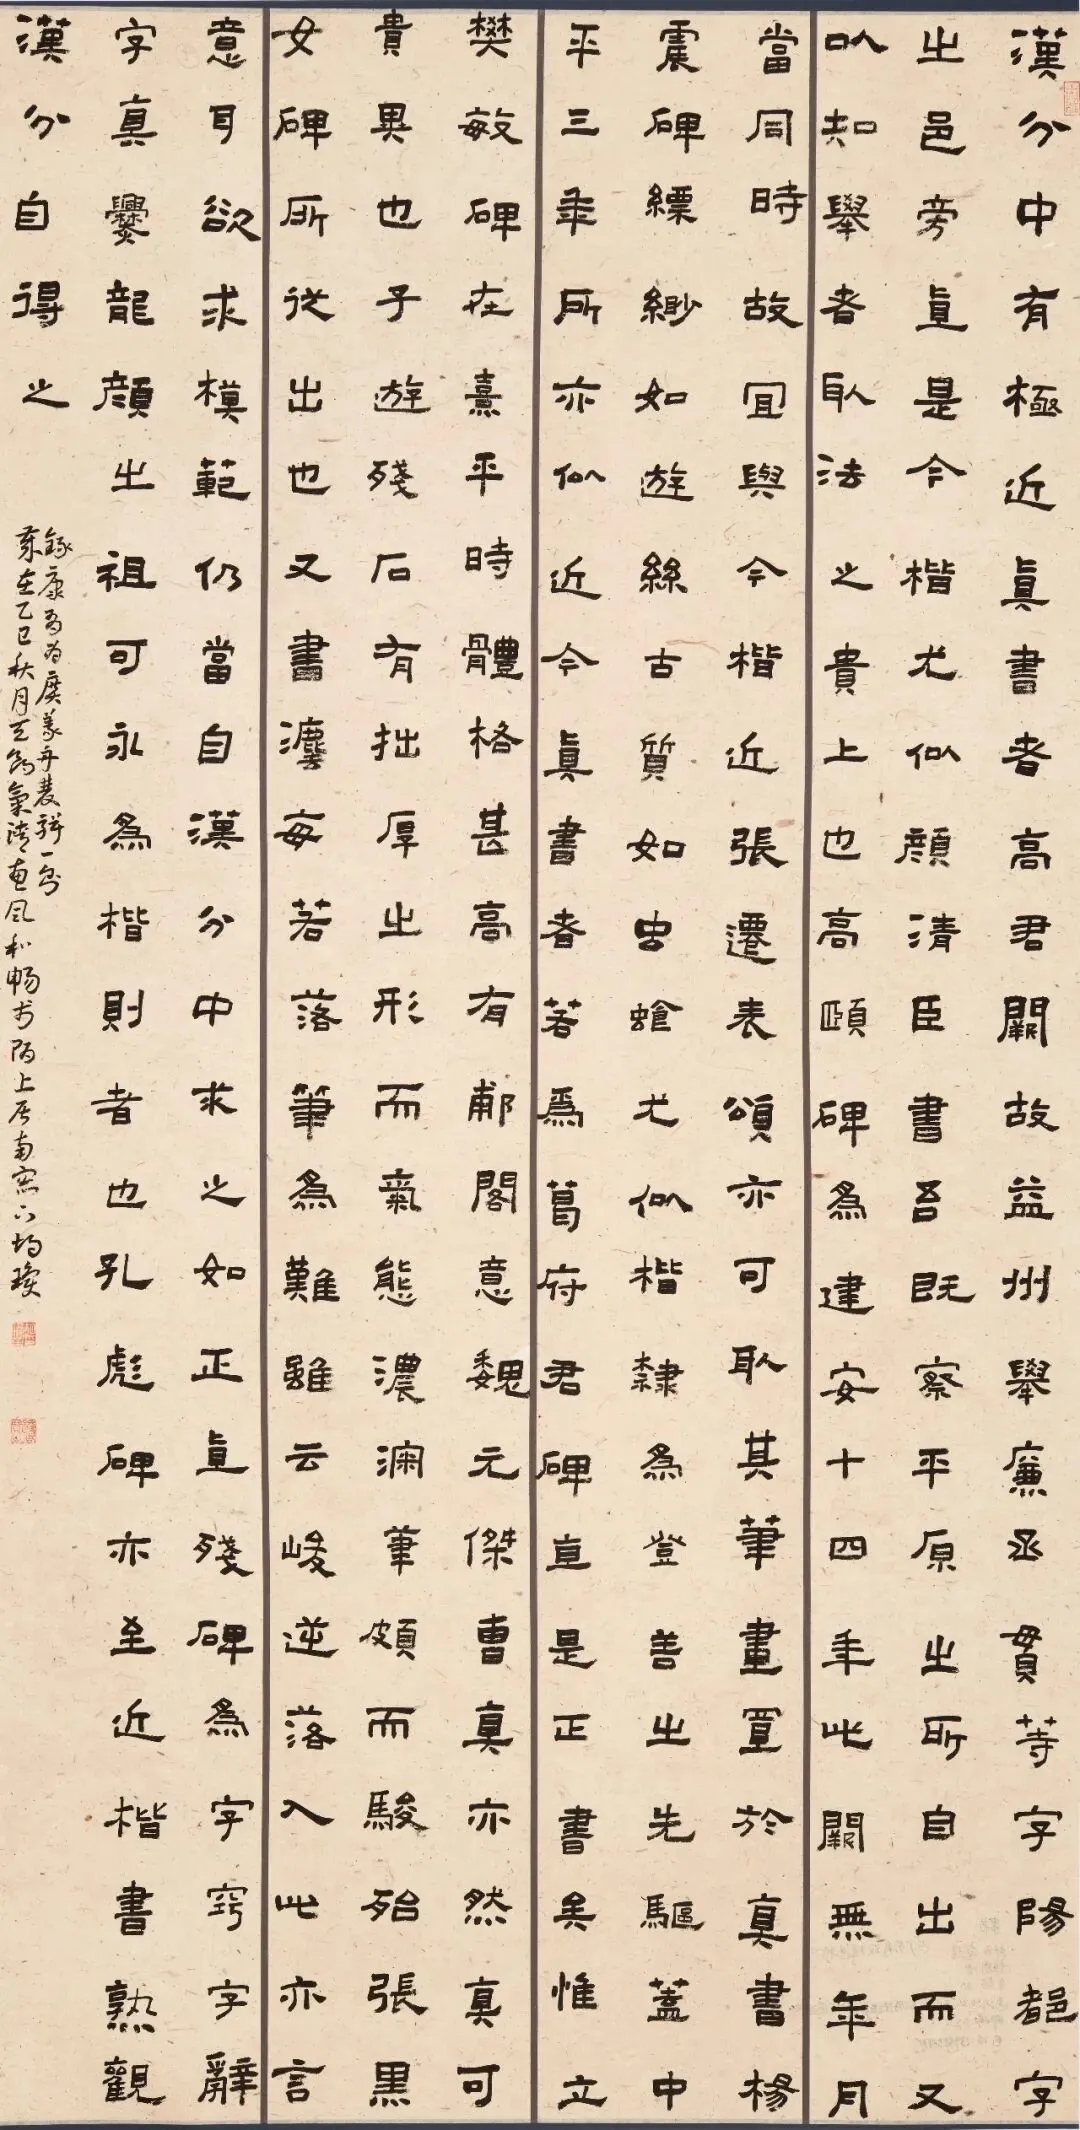 漢分中有極近眞書者高君闕故益州舉廉丞貫等字陽都字
之邑旁直是今楷尤似顔清臣書吾既察平原之所自出而又
以知學者取法之貴上也高頤碑為建安十四年此闕無年月
當同時故宜與今楷近張遷表頌亦可取其筆畫置於真書楊
震碑縹緲如遊絲古質如虫蝕尤似楷隸為登善之先驅蓋中
平三年所亦似近今眞書者若為葛府君碑直是正書矣惟立
樊敏碑在熹平時體格甚高有郙閣意魏元傑曹真亦然真可
貴異也子遊殘石有拙厚之形而氣態濃深筆頗而駿殆張黑
女碑所從出也又書灋每苦落筆為難雖云峻逆落入此亦言
意耳欲求模範仍當自漢分中求之如正直殘碑為字竅字辭
字真爨龍顔之祖可永為楷則者也孔彪碑亦至近楷書熟觀
漢分自得之
錄康有為廣藝舟雙楫一則
歲在乙巳秋月天朗氣清惠風和暢書於